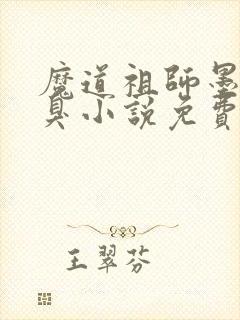 魔道祖師墨
臭小説免費
王翠芬